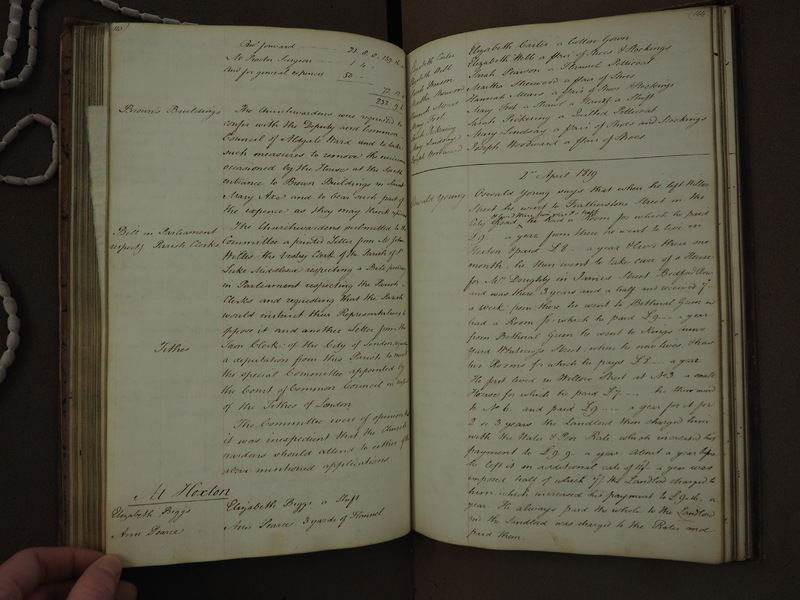 143
Bro.t forward 21. 0. 0
Mr Proctor Surgeon 1 4 -
And for general expences 50 - -
Brown's Buildings
The Churchwardens were requested to
confer with the Deputy and Common
Council of Aldgate Ward and to take
such measures to remove the nuisance
occasioned by the House at the South
entrance to Brown Buildings in Saint
Mary Axe and to bear such part of
the expence as they may think
Bill in Parliament
respectg Parish Clerks
The Churchwardens submitted to the
Committee a printed Letter from Mr John
the Vestry Clerk of the Parish of St
Luke Middlesex respecting a Bill
in Parliament respecting the Parish
Clerks and requesting that the Parish
would instruct their Representatives to
oppose it and another Letter from the
Town Clerk of the City of London
a deputation from this Parish to meet
the special Committee appointed by
the Court of Common Council
of the Tithes of London
Tithes
The Committee were of opinion
it was inexpedient that the Church
wardens should attend to either of the
above mentioned applications
At Hoxton
Elizabeth Biggs
Elizabeth Biggs a Shift
Ann Pearce
Ann Pearce 3 yards of Flannel
144
Elizabeth Carter a Cotton Gown
Elizabeth Webb a pair of Shoes & Stockings
Sarah Pearson a Flannel Petticoat
Martha Sherwood a pair of Shoes
Hannah Mears a pair of Shoes & Stockings
Mary Foot a Shawl a Handf a Shift
Sarah Pickering a Quilted Petticoat
Mary Lindsay a pair of Shoes and Stockings
Joseph Woodward a pair of Shoes
2nd April 1819
Oswald Young
Oswald Young says that when he left Wilson
Street he went to Featherstone Street in the
City Road he had a Room for which he paid
£9.- a year from there he went to live in
Hoxton & paid £8 .. a year & lives there one
month, he then went to take care of a House
for Mr Doughty in James Street Bedford Row
and was there 3 years and a half and received 7/-
a week from there he went to Bethnal Green
had a Room for which he paid £9 .. a year
from Bethnal Green he went to Kings
Yard Whitecross Street where he now lives & has
two Rooms for which he pays £8 .. a year
He first lived in Wilson Street at No 3 a small
House for which he paid £7 .. he then went
to No 6. and paid £9 .. a year for it for
2 or 3 years the Landlord then charged him
with the Water & Poor Rate which increased his
payment to £9.9. a year about a year before
he left it an additional rate of 14/- a year was
imposed half of which 7/- the Landlord charged to
him which increased his payment to £9.16. a
year He always paid the whole to the Landlord
and the Landlord was charged to the Rates and
paid them.